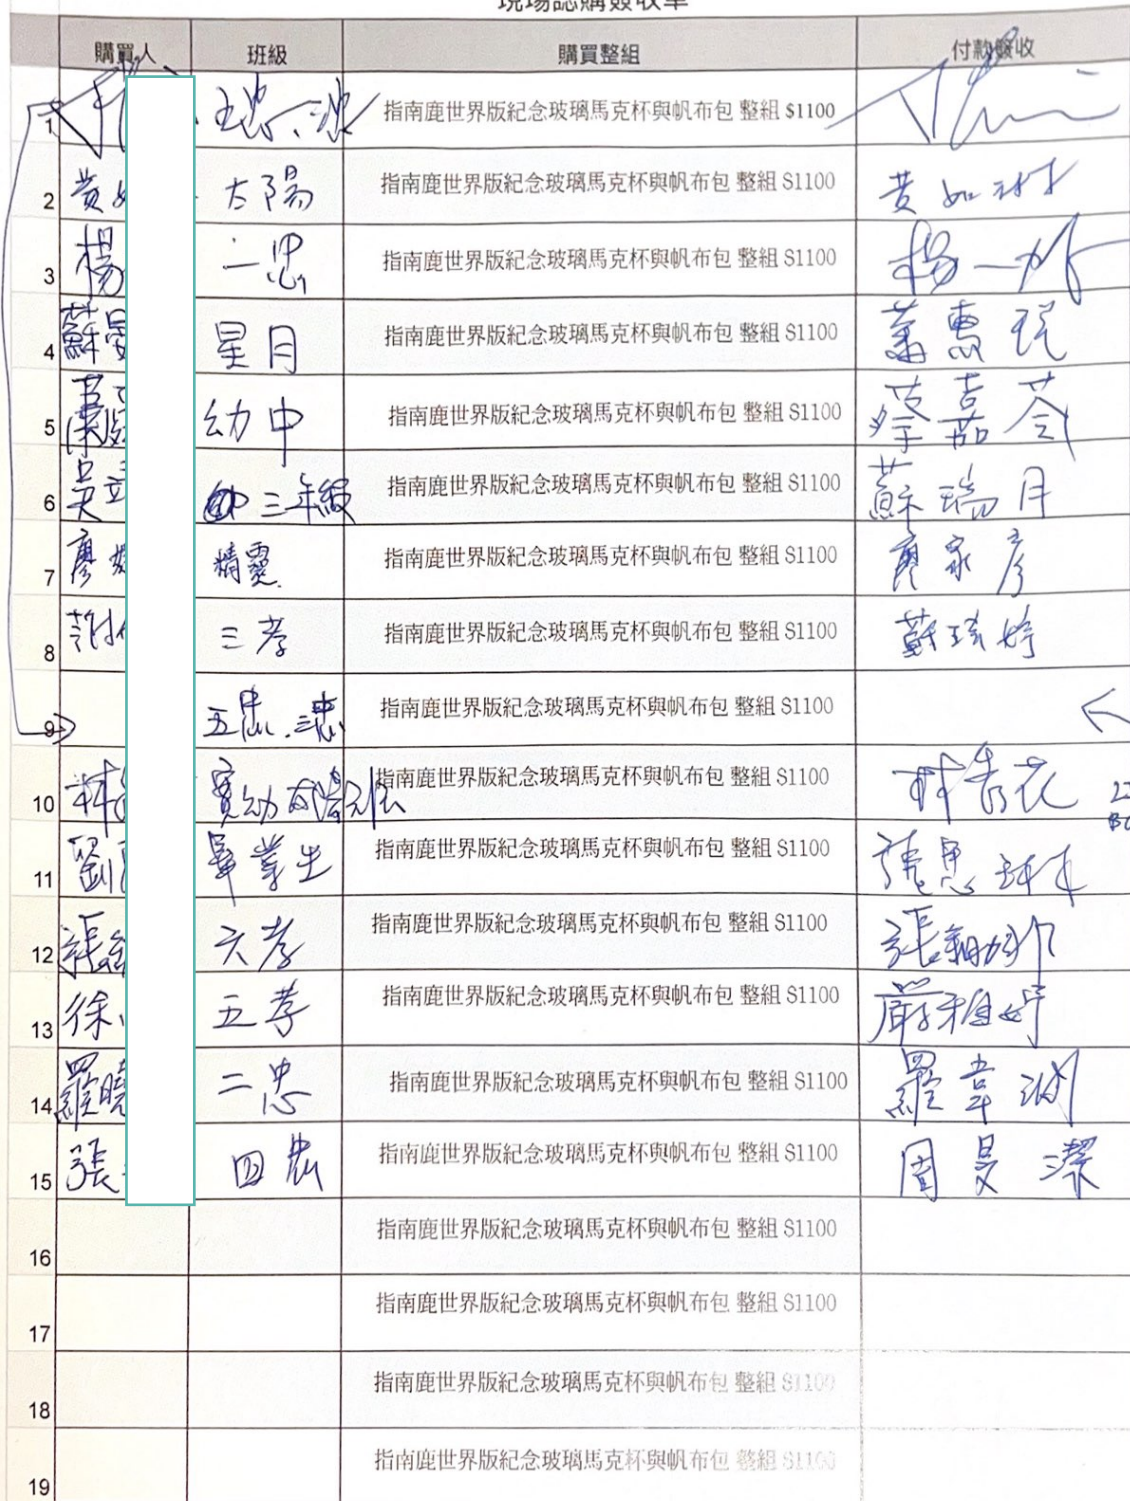 現場認購簽收單
購買人 班級 購買整組 付款簽收
1 指南鹿世界版紀念玻璃馬克杯與帆布包 整組 $1100
2 黃如 太陽 指南鹿世界版紀念玻璃馬克杯與帆布包 整組 $1100 黃如
3 楊 一忠 指南鹿世界版紀念玻璃馬克杯與帆布包 整組 $1100 楊一
4 蘇晏 星月 指南鹿世界版紀念玻璃馬克杯與帆布包 整組 $1100 蕭惠
5 幼中 指南鹿世界版紀念玻璃馬克杯與帆布包 整組 $1100 蔡嘉苓
6 吳 三年級 指南鹿世界版紀念玻璃馬克杯與帆布包 整組 $1100 蘇瑞月
7 廖 精靈 指南鹿世界版紀念玻璃馬克杯與帆布包 整組 $1100 廖家彥
8 謝 三孝 指南鹿世界版紀念玻璃馬克杯與帆布包 整組 $1100 蘇琦婷
9 五忠、三忠 指南鹿世界版紀念玻璃馬克杯與帆布包 整組 $1100
10 林 指南鹿世界版紀念玻璃馬克杯與帆布包 整組 $1100 林秀花
11 劉 畢業生 指南鹿世界版紀念玻璃馬克杯與帆布包 整組 $1100 思
12 張 六孝 指南鹿世界版紀念玻璃馬克杯與帆布包 整組 $1100 張
13 徐 五孝 指南鹿世界版紀念玻璃馬克杯與帆布包 整組 $1100 嚴雅婷
14 羅曉 二忠 指南鹿世界版紀念玻璃馬克杯與帆布包 整組 $1100 羅韋
15 張 四忠 指南鹿世界版紀念玻璃馬克杯與帆布包 整組 $1100 周曼潔
16 指南鹿世界版紀念玻璃馬克杯與帆布包 整組 $1100
17 指南鹿世界版紀念玻璃馬克杯與帆布包 整組 $1100
18 指南鹿世界版紀念玻璃馬克杯與帆布包 整組 $1100
19 指南鹿世界版紀念玻璃馬克杯與帆布包 整組 $1100